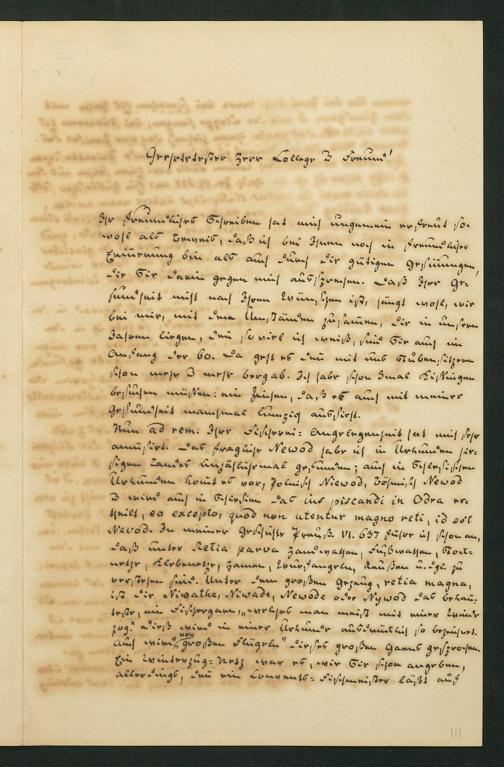 Geehrtester Herr College & Freund!
Ihr freundliches Schreiben hat mich ungemein erfreut so-
wohl als Beweis, daß ich bei Ihnen noch in freundlicher
Erinnerung bin als auch durch die gütigen Gesinnungen,
die Sie darin gegen mich aussprechen. Daß Ihre Ge-
sundheit nicht nach Ihren Wünschen ist, hängt wohl, wie
bei mir, mit den Umständen zusammen, die in unsern
Jahren liegen, denn soviel ich weiß, sind Sie auch im
Anfang der 60. Da geht es denn mit uns Stubensitzern
schon mehr & mehr bergab. Ich habe schon 3mal Kissingen
besuchen müssen: ein Zeichen, daß es auch mit meiner
Gesundheit manchmal lumpig aussieht.
Nun ad rem. Ihre Fischerei-Angelegenheit hat mich sehr
amüsirt. Das fragliche Newod habe ich in Urkunden hie-
sigen Landes unzähligemal gefunden; auch in Schlesischen
Urkunden kommt es vor; Polnisch Niewod, Böhmisch Newod
& wird auch in Schlesien das ius piscandi in Odra er-
theilt, eo excepto, quod non utentur magno reti, id est
Nevod. In meiner Geschichte Preuß. VI. 637 führe ich schon an,
daß unter Retia parva Handwathen, Fußwathen, Stock-
netze, Hamen, Wurfangeln, u. dgl. zu
verstehen sind. Unter dem großen Gezeug, retia magna,
ist die Niwathe, Niwade, Newode oder Nywod das bekann-
teste, ein Fischergarn, „welches man meist mit einer Winde
zog." Dieß wird in einer Urkunde ausdrücklich so bezeichnet.
Auch wird „von großen Flügeln" dieses großen Garns gesprochen.
Ein Winterzug-Netz war es, wie Sie schon angeben,
allerdings, denn ein Convents-Fischmeister läßt auf
111